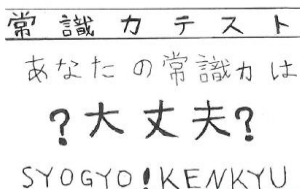 常識力テスト
あなたの常識力は
?大丈夫?
SYOGYO!KENKYU